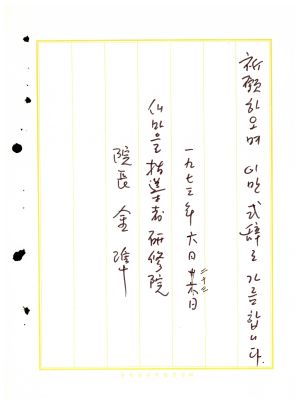 祈願하오며 이만 式辭로 가름합니다.
一九七三年 六月 二十三日
새마을指導者研修院
院長 金準